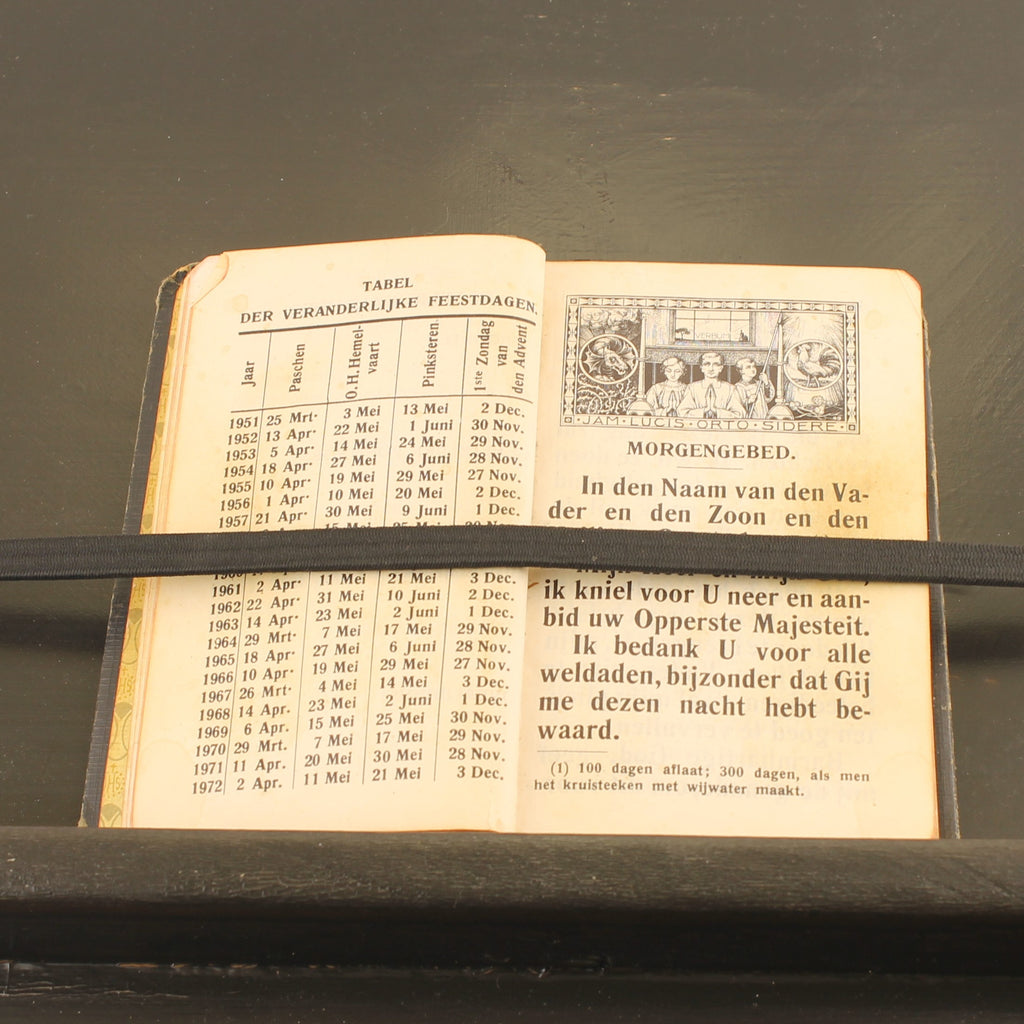 TABEL
DER VERANDERLIJKE FEESTDAGEN.
Jaar Paschen O.H.Hemel-vaart Pinksteren. 1ste Zondag van den Advent
1951 25 Mrt. 3 Mei 13 Mei 2 Dec.
1952 13 Apr. 22 Mei 1 Juni 30 Nov.
1953 5 Apr. 14 Mei 24 Mei 29 Nov.
1954 18 Apr. 27 Mei 6 Juni 28 Nov.
1955 10 Apr. 19 Mei 29 Mei 27 Nov.
1956 1 Apr. 10 Mei 20 Mei 2 Dec.
1957 21 Apr. 30 Mei 9 Juni 1 Dec.
1961 2 Apr. 11 Mei 21 Mei 3 Dec.
1962 22 Apr. 31 Mei 10 Juni 2 Dec.
1963 14 Apr. 23 Mei 2 Juni 1 Dec.
1964 29 Mrt. 7 Mei 17 Mei 29 Nov.
1965 18 Apr. 27 Mei 6 Juni 28 Nov.
1966 10 Apr. 19 Mei 29 Mei 27 Nov.
1967 26 Mrt. 4 Mei 14 Mei 3 Dec.
1968 14 Apr. 23 Mei 2 Juni 1 Dec.
1969 6 Apr. 15 Mei 25 Mei 30 Nov.
1970 29 Mrt. 7 Mei 17 Mei 29 Nov.
1971 11 Apr. 20 Mei 30 Mei 28 Nov.
1972 2 Apr. 11 Mei 21 Mei 3 Dec.
VERBUM
JAM·LUCIS·ORTO·SIDERE
MORGENGEBED.
In den Naam van den Va-
der en den Zoon en den
ik kniel voor U neer en aan-
bid uw Opperste Majesteit.
Ik bedank U voor alle
weldaden, bijzonder dat Gij
me dezen nacht hebt be-
waard.
(1) 100 dagen aflaat; 300 dagen, als men
het kruisteeken met wijwater maakt.